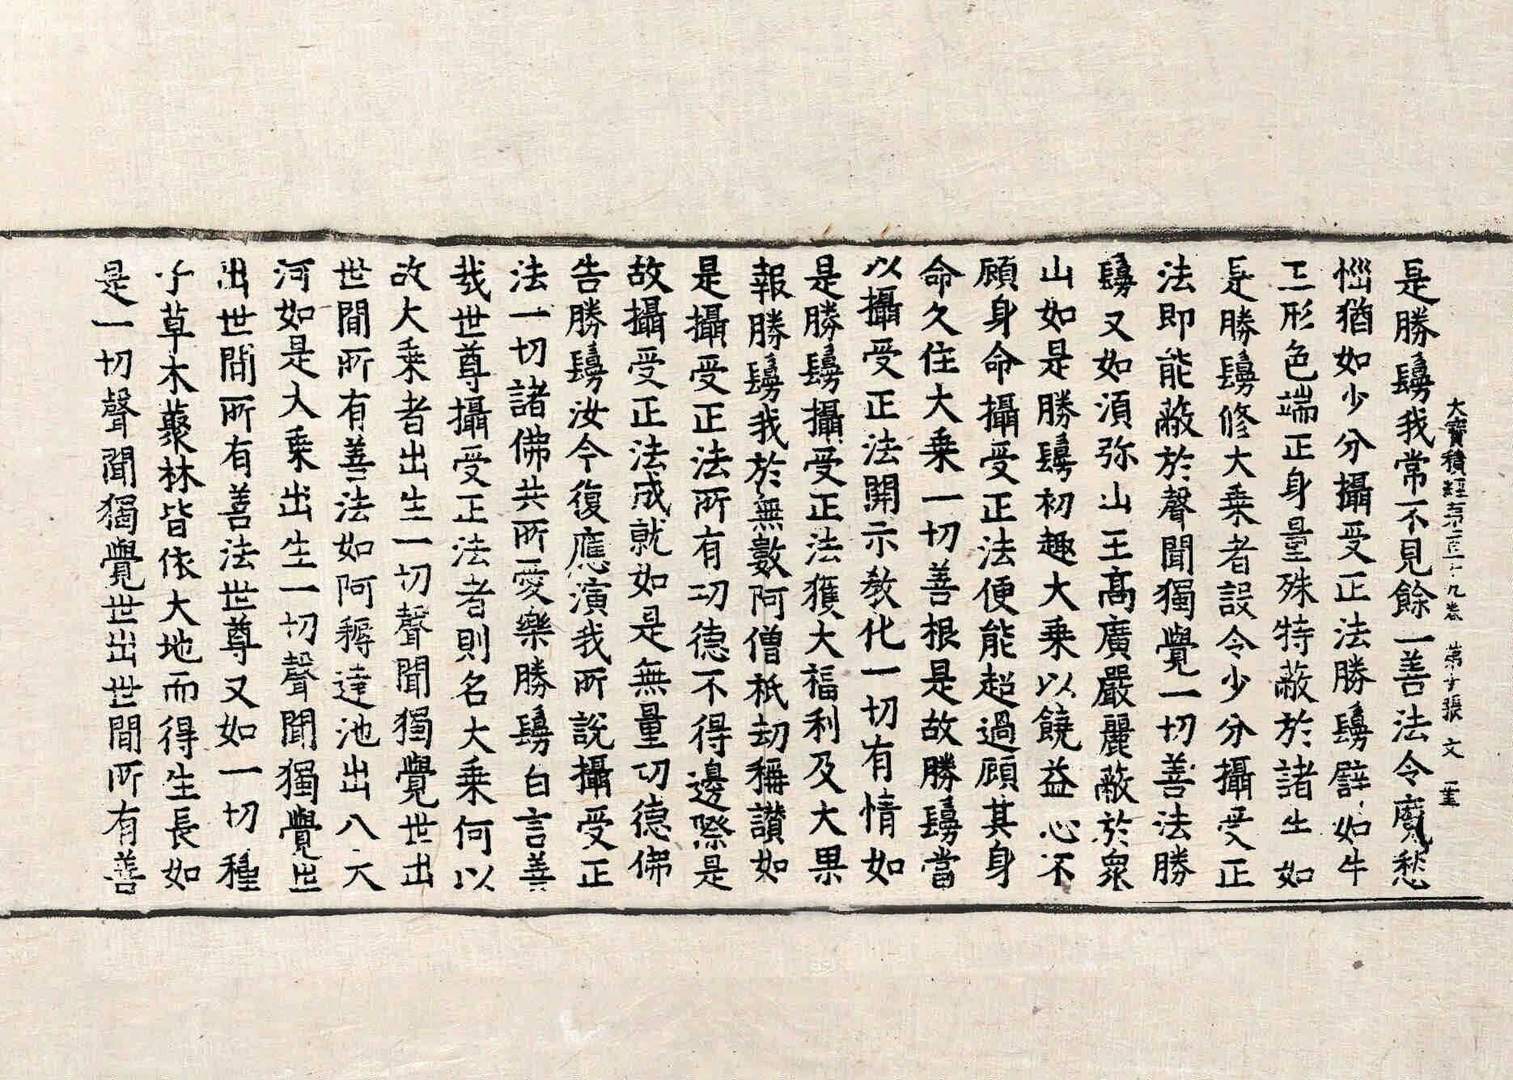 大寶積經第一百一十九卷 第十張 文
是勝鬘我常不見餘一善法令魔愁
惱猶如少分攝受正法勝鬘譬如牛
王形色端正身量殊特蔽於諸牛如
是勝鬘修大乘者設令少分攝受正
法即能蔽於聲聞獨覺一切善法勝
鬘又如須弥山王高廣嚴麗蔽於衆
山如是勝鬘初趣大乘以饒益心不
顧身命攝受正法便能超過顧其身
命久住大乘一切善根是故勝鬘當
以攝受正法開示教化一切有情如
是勝鬘攝受正法獲大福利及大果
報勝鬘我於無數阿僧祇劫稱讃如
是攝受正法所有功德不得邊際是
故攝受正法成就如是無量功德佛
告勝鬘汝今復應演我所說攝受正
法一切諸佛共所愛樂勝鬘白言善
哉世尊攝受正法者則名大乘何以
故大乘者出生一切聲聞獨覺世出
世間所有善法如阿耨達池出八大
河如是大乘出生一切聲聞獨覺世
出世間所有善法世尊又如一切種
子草木藂林皆依大地而得生長如
是一切聲聞獨覺世出世間所有善